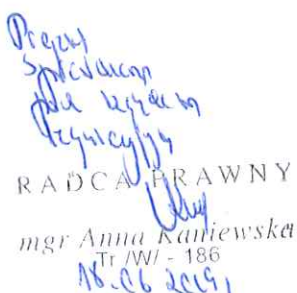 Projekt
sprawdzono
pod względem
redakcyjnym
RADCA PRAWNY
mgr Anna Kaniewska
Tr /W/ - 186
18.06.2019,